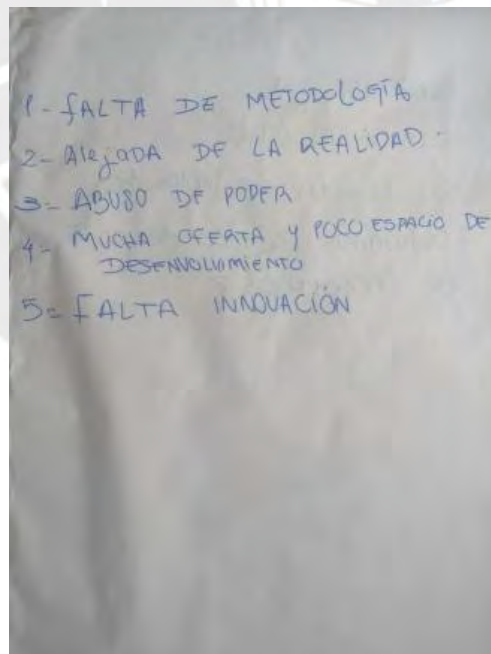 1- FALTA DE METODOLOGÍA
2- AlejADA DE LA REALIDAD.
3- ABUSO DE PODER
4- MUCHA OFERTA y POCO ESPACIO DE
DESENVOLVIMIENTO
5= FALTA INNOVACIÓN